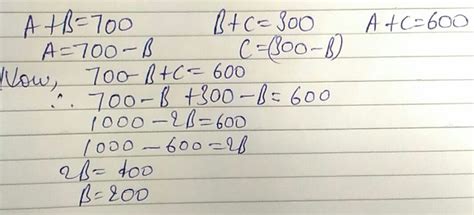 A+B=700 B+C=300 A+C=600
A=700-B C=(300-B)
Now, 700-B+C=600
∴ 700-B+300-B=600
1000-2B=600
1000-600=2B
2B=400
B=200